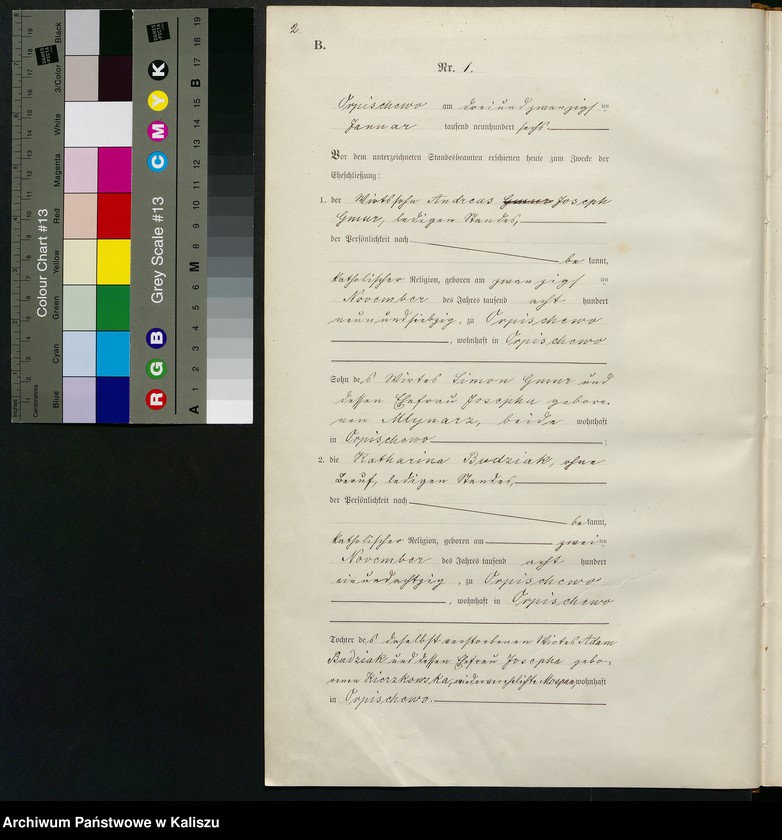 2
B.
Nr. 1.
Orpischewo am dreiundzwanzigs ten
Januar tausend neunhundert sechs.
Vor dem unterzeichneten Standesbeamten erschienen heute zum Zwecke der
Eheschließung:
1. der Wirtssohn Andreas Joseph
Gmur, ledigen Standes,
der Persönlichkeit nach
be kannt,
katholischer Religion, geboren am zwanzigs ten
November des Jahres tausend acht hundert
neunundsiebzig, zu Orpischewo
, wohnhaft in Orpischewo
Sohn des Wirtes Simon Gmur und
dessen Ehefrau Josepha gebore-
nen Mlynarz, beide wohnhaft
in Orpischewo ;
2. die Katharina Budziak, ohne
Beruf, ledigen Standes,
der Persönlichkeit nach
be kannt,
katholischer Religion, geboren am zwei ten
November des Jahres tausend acht hundert
einundachtzig, zu Orpischewo
, wohnhaft in Orpischewo
Tochter des daselbst verstorbenen Wirtes Adam
Budziak und dessen Ehefrau Josepha gebo-
renen Kierzkowska, wiederverehelichte wohnhaft
in Orpischewo.
Colour Chart #13
Grey Scale #13
Blue Cyan Green Yellow Red Magenta White 3/Color Black
Inches
Centimetres
DANES PICTA
R G B
C M Y K
A 1 2 3 4 5 6 M 8 9 10 11 12 13 14 15 B 17 18 19
Archiwum Państwowe w Kaliszu